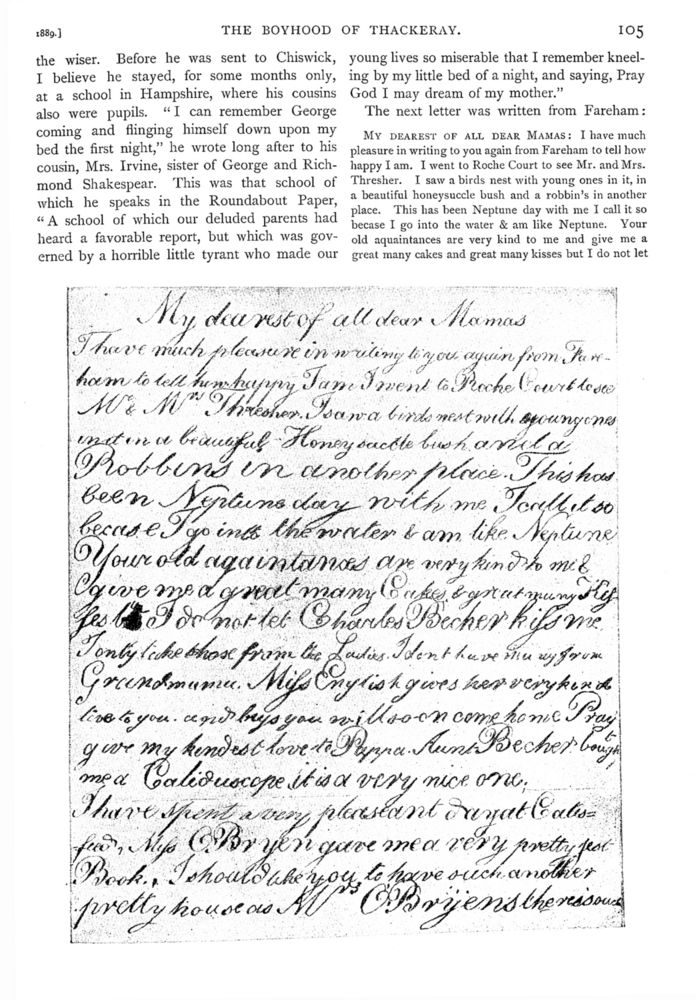 1889.] THE BOYHOOD OF THACKERAY. 105
the wiser. Before he was sent to Chiswick,
I believe he stayed, for some months only,
at a school in Hampshire, where his cousins
also were pupils. “I can remember George
coming and flinging himself down upon my
bed the first night,” he wrote long after to his
cousin, Mrs. Irvine, sister of George and Rich-
mond Shakespear. This was that school of
which he speaks in the Roundabout Paper,
“A school of which our deluded parents had
heard a favorable report, but which was gov-
erned by a horrible little tyrant who made our
young lives so miserable that I remember kneel-
ing by my little bed of a night, and saying, Pray
God I may dream of my mother.”
The next letter was written from Fareham:
MY DEAREST OF ALL DEAR MAMAS: I have much
pleasure in writing to you again from Fareham to tell how
happy I am. I went to Roche Court to see Mr. and Mrs.
Thresher. I saw a birds nest with young ones in it, in
a beautiful honeysuccle bush and a robbin's in another
place. This has been Neptune day with me I call it so
becase I go into the water & am like Neptune. Your
old aquaintances are very kind to me and give me a
great many cakes and great many kisses but I do not let
My dearest of all dear Mamas
I have much pleasure in writing to you again from Fare-
ham to tell how happy I am I went to Roche Court to see
Mr & Mrs Thresher. I saw a birds nest with young ones
in it in a beautiful Honey suctle bush and a
Robbins in another place. This has
been Neptune day with me I call it so
becase I go into the water & am like Neptune
Your old aquaintances are very kind to me &
give me a great many Cakes & great many Kis
ses but I do not let Charles Becher kiss me
I only take those from the Ladies. I dont have many from
Grandmama. Miss English gives her very kind
love to you. and begs you will soon come home Pray
give my kindest love to Pappa. Aunt Becher bought
me a Caliduscope it is a very nice one.
I have spent a very pleasant day at Cates=
field, Miss OBryen gave me a very pretty jest
Book. I should like you to have such another
pretty house as Mrs OBryens there is